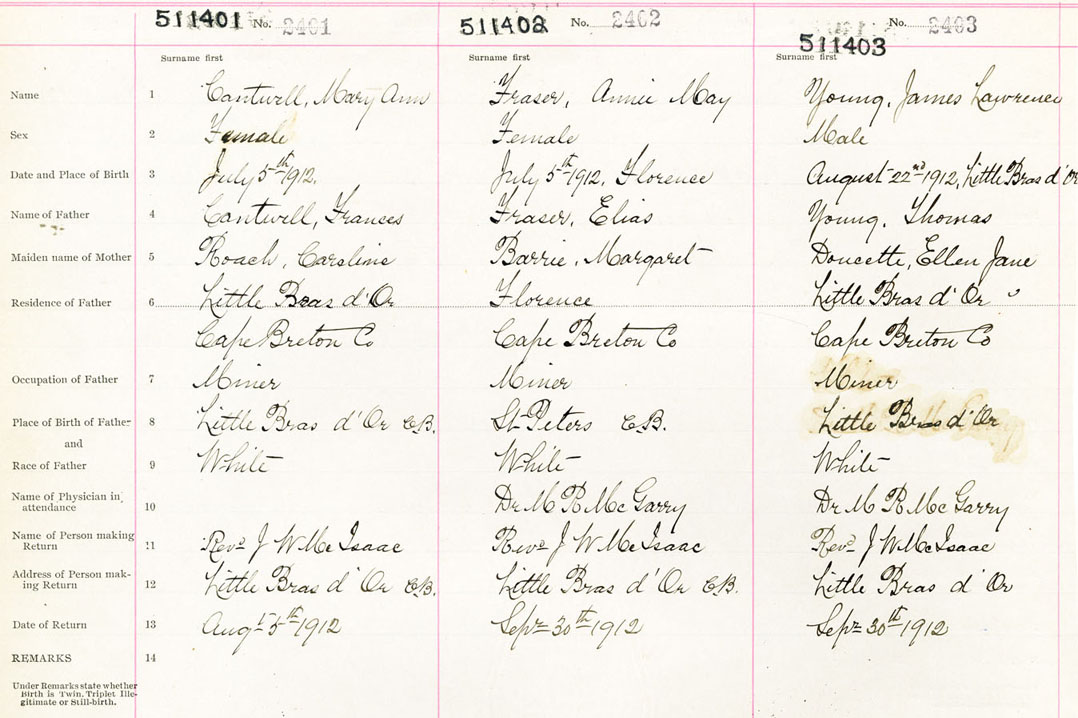 511401 No. 2401 511402 No. 2402 511403 No. 2403
Surname first Surname first Surname first
Name 1 Cantwell, Mary Ann Fraser, Annie May Young, James Lawrence
Sex 2 Female Female Male
Date and Place of Birth 3 July 5th 1912. July 5th 1912, Florence August 22nd 1912, Little Bras d'Or
Name of Father 4 Cantwell, Frances Fraser, Elias Young, Thomas
Maiden name of Mother 5 Roach, Carsline Barrie, Margaret Doucette, Ellen Jane
Residence of Father 6 Little Bras d'Or Florence Little Bras d'Or
Cape Breton Co Cape Breton Co Cape Breton Co
Occupation of Father 7 Miner Miner Miner
Place of Birth of Father 8 Little Bras d'Or C.B. St Peters C.B. Little Bras d'Or
and
Race of Father 9 White White White
Name of Physician in attendance 10 Dr M R McGarry Dr M R McGarry
Name of Person making Return 11 Revd J W McIsaac Revd J W McIsaac Revd J W McIsaac
Address of Person making Return 12 Little Bras d'Or C.B. Little Bras d'Or C.B. Little Bras d'Or
Date of Return 13 Augt 5th 1912 Sept 30th 1912 Sept 30th 1912
REMARKS 14
Under Remarks state whether
Birth is Twin, Triplet Ille-
gitimate or Still-birth.